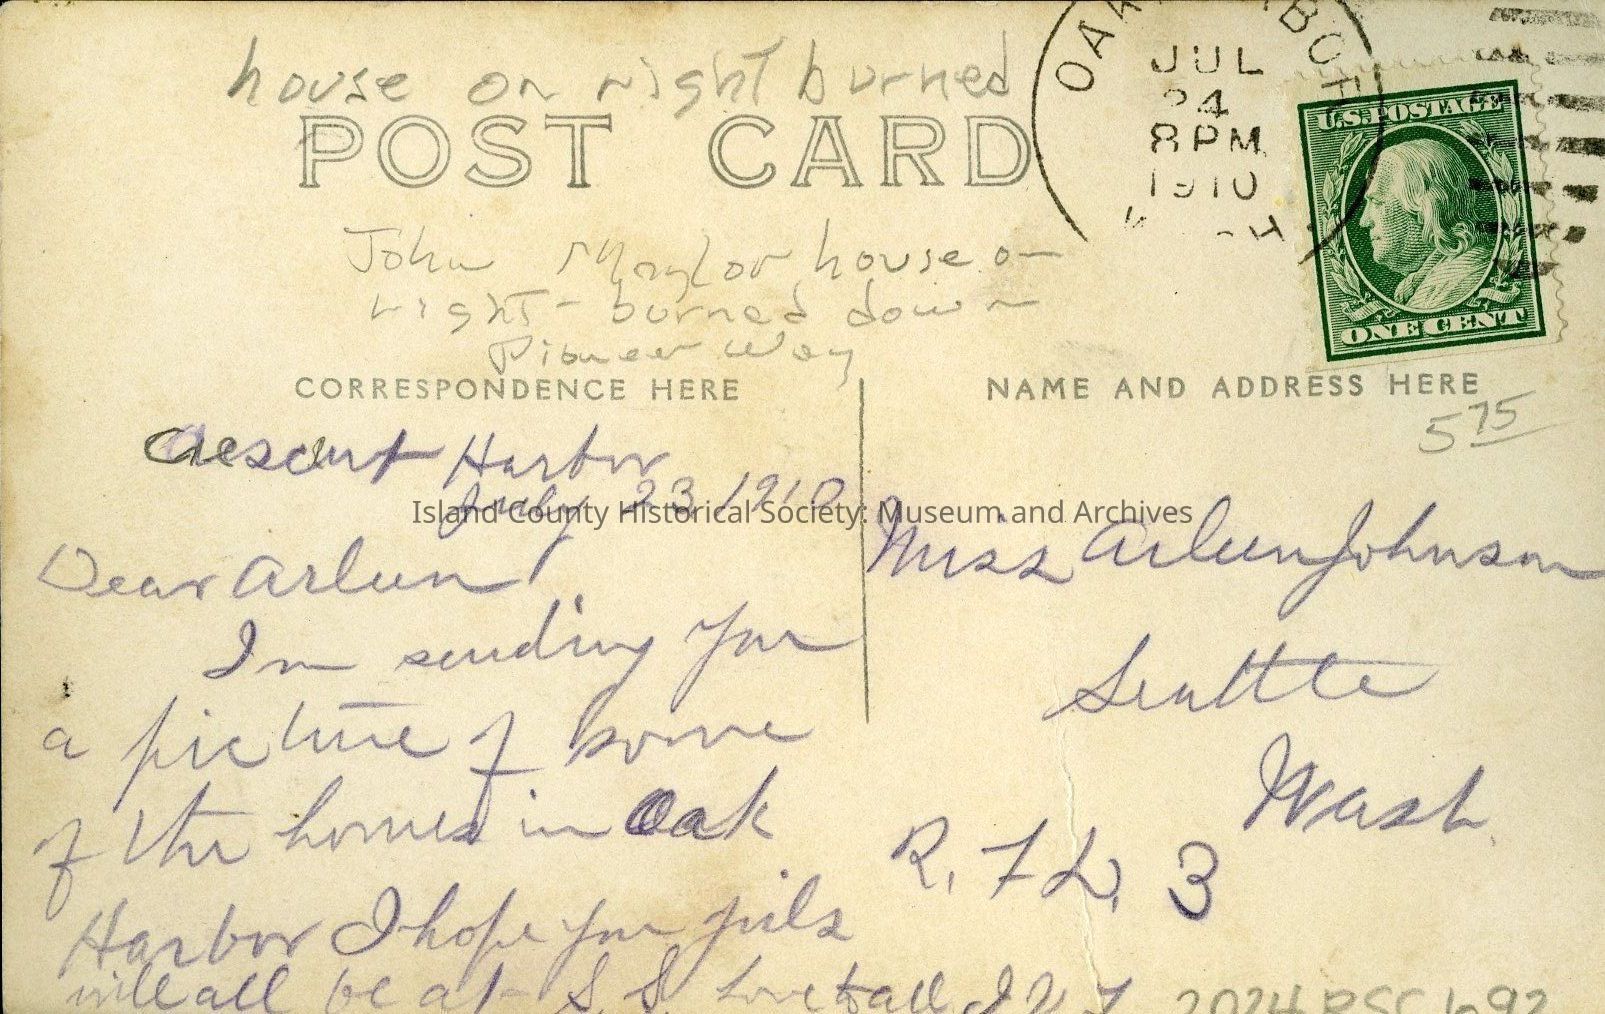 house on right burned
POST CARD
OAK HARBOR
JUL
24
8 PM
1910
WASH
U.S. POSTAGE
ONE CENT
John Maylor house on
right - burned down
Pioneer Way
CORRESPONDENCE HERE
NAME AND ADDRESS HERE
5 75
Crescent Harbor
July 23 1910
Island County Historical Society: Museum and Archives
Dear Arleen
Im sending you
a picture of some
of the homes in Oak
Harbor I hope you girls
will all be at S.S. Love to all
Miss Arleen Johnson
Seattle
Wash.
R. F. D. 3
2024.PSC.